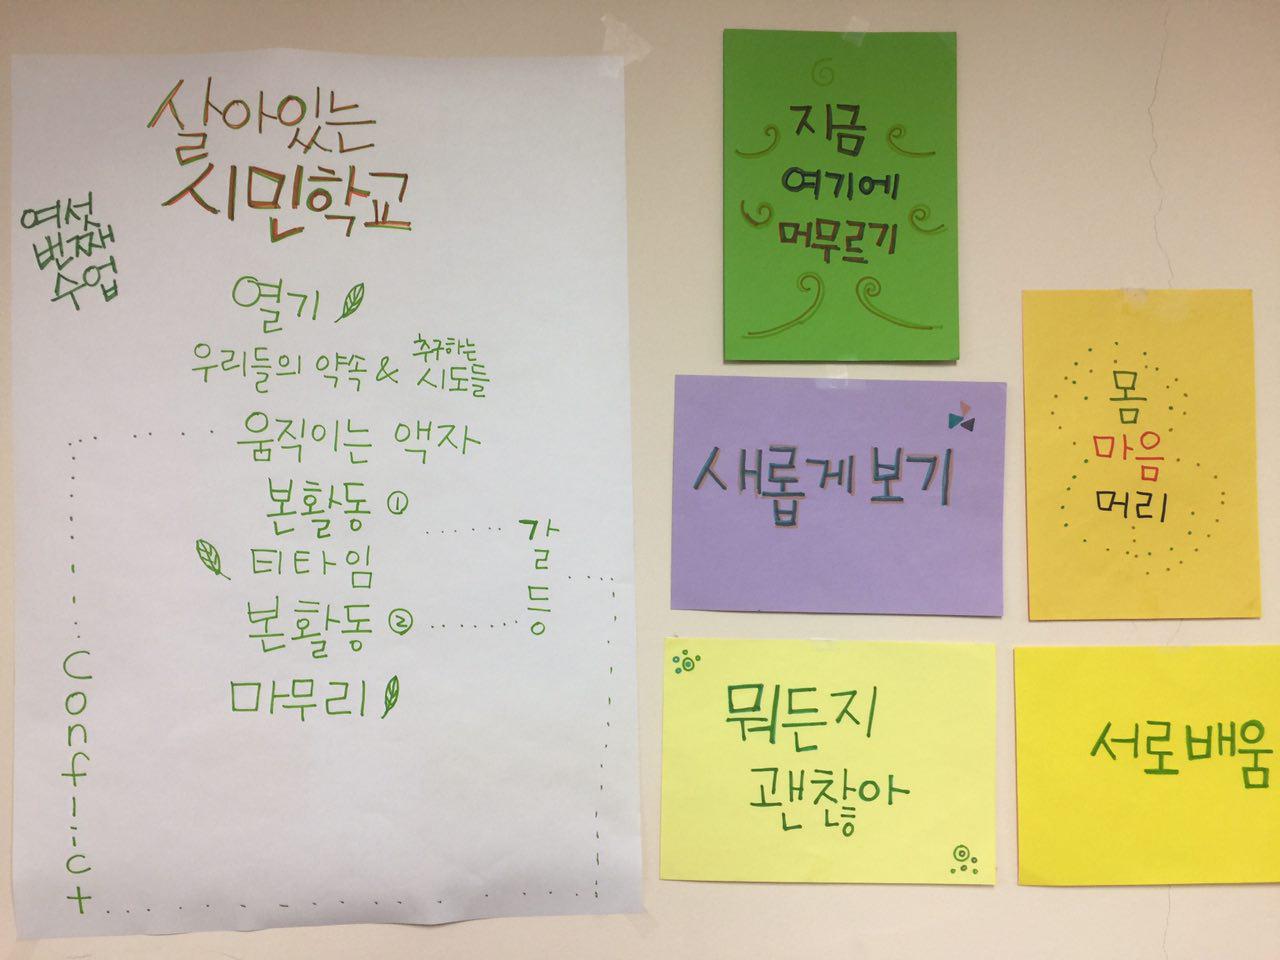 살아있는
시민학교
여섯
번째
수업
열기
우리들의 약속 & 추구하는 시도들
움직이는 액자
본활동 ①
티타임
본활동 ②
마무리
갈등
Conflict
지금
여기에
머무르기
새롭게 보기
몸
마음
머리
뭐든지
괜찮아
서로 배움